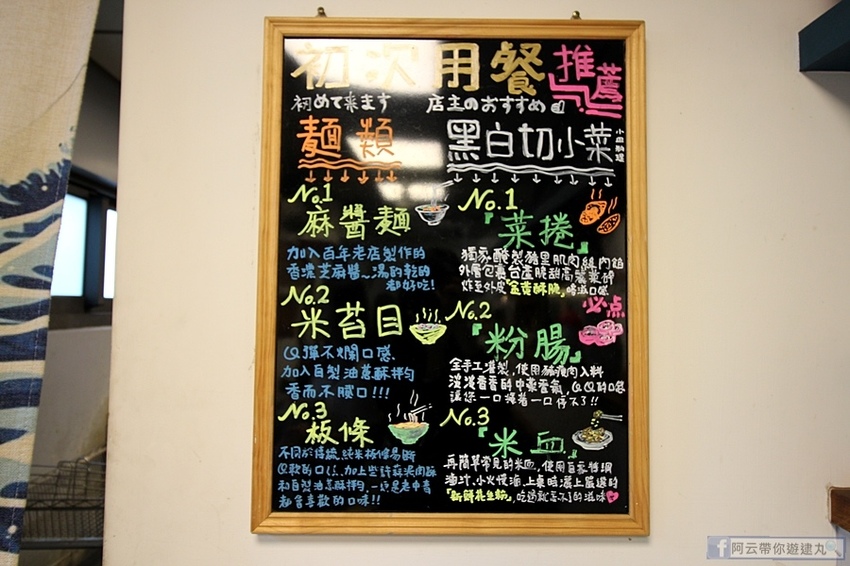 初次用餐推薦
初めて来ます 店主のおすすめ
麵類
No.1
麻醬麵
加入百年老店製作的
香濃芝麻醬~湯的乾的
都好吃!
No.2
米苔目
QQ彈不爛口感、
加入自製油蔥酥拌勻
香而不膩口!!!
No.3
板條
不同於傳統、純米板條易斷
Q軟的口感、加上
和自製油蔥酥拌勻、一
都會喜歡的口味!!
黑白切小菜
小皿料理
No.1
『菜捲』
獨家醃製豬里肌肉絲內餡
外層包裹台產脆甜高麗菜
炸至外皮「金黃酥脆」
必点
No.2
『粉腸』
全手工灌製、使用豬瘦肉入料
淡淡香香的中藥香氣、QQ的口感
讓您一口接著一口停不了!!
No.3
『米血』
再簡單常見的米血、使用自家特調
滷汁、小火慢滷、上桌時灑上嚴選的
「新鮮花生粉」、的滋味
阿云帶你遊建丸